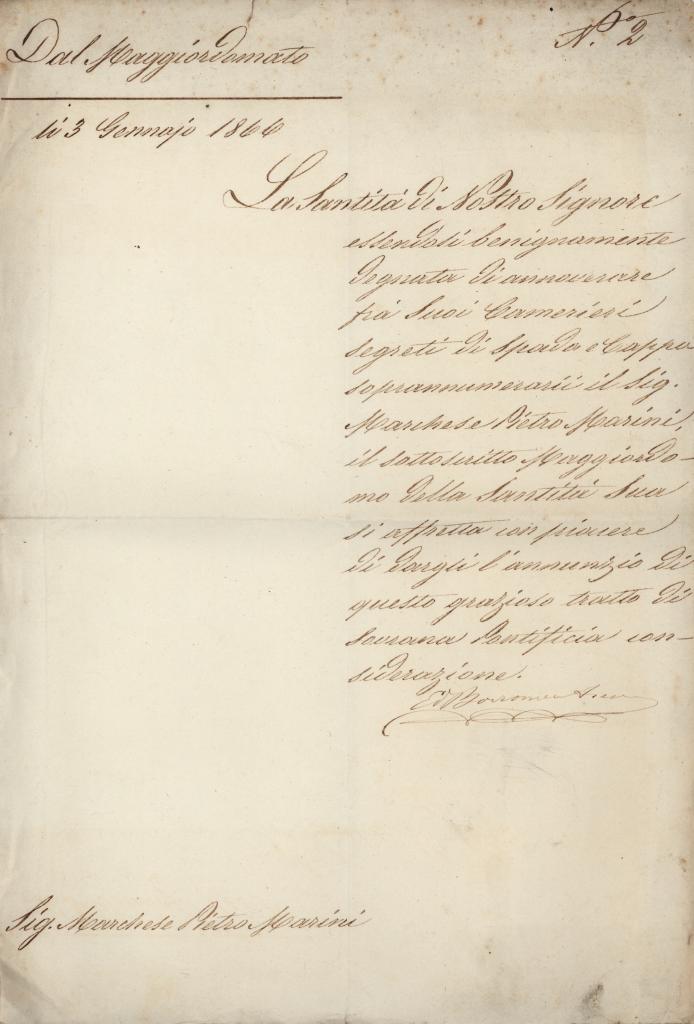 Dal Maggiordomato
N.° 2
li 3 Gennajo 1866
La Santitá di Nostro Signore
essendosi benignamente
degnata di annoverare
frá Suoi Camerieri
segreti di Spada e Cappa
soprannumerarii il Sig.
Marchese Pietro Marini,
il sottoscritto Maggiordo-
mo della Santitá Sua
si affretta con piacere
di dargli l'annunzio di
questo grazioso tratto di
Sovrana Pontificia con-
siderazione.
Ed Borromeo
Sig. Marchese Pietro Marini